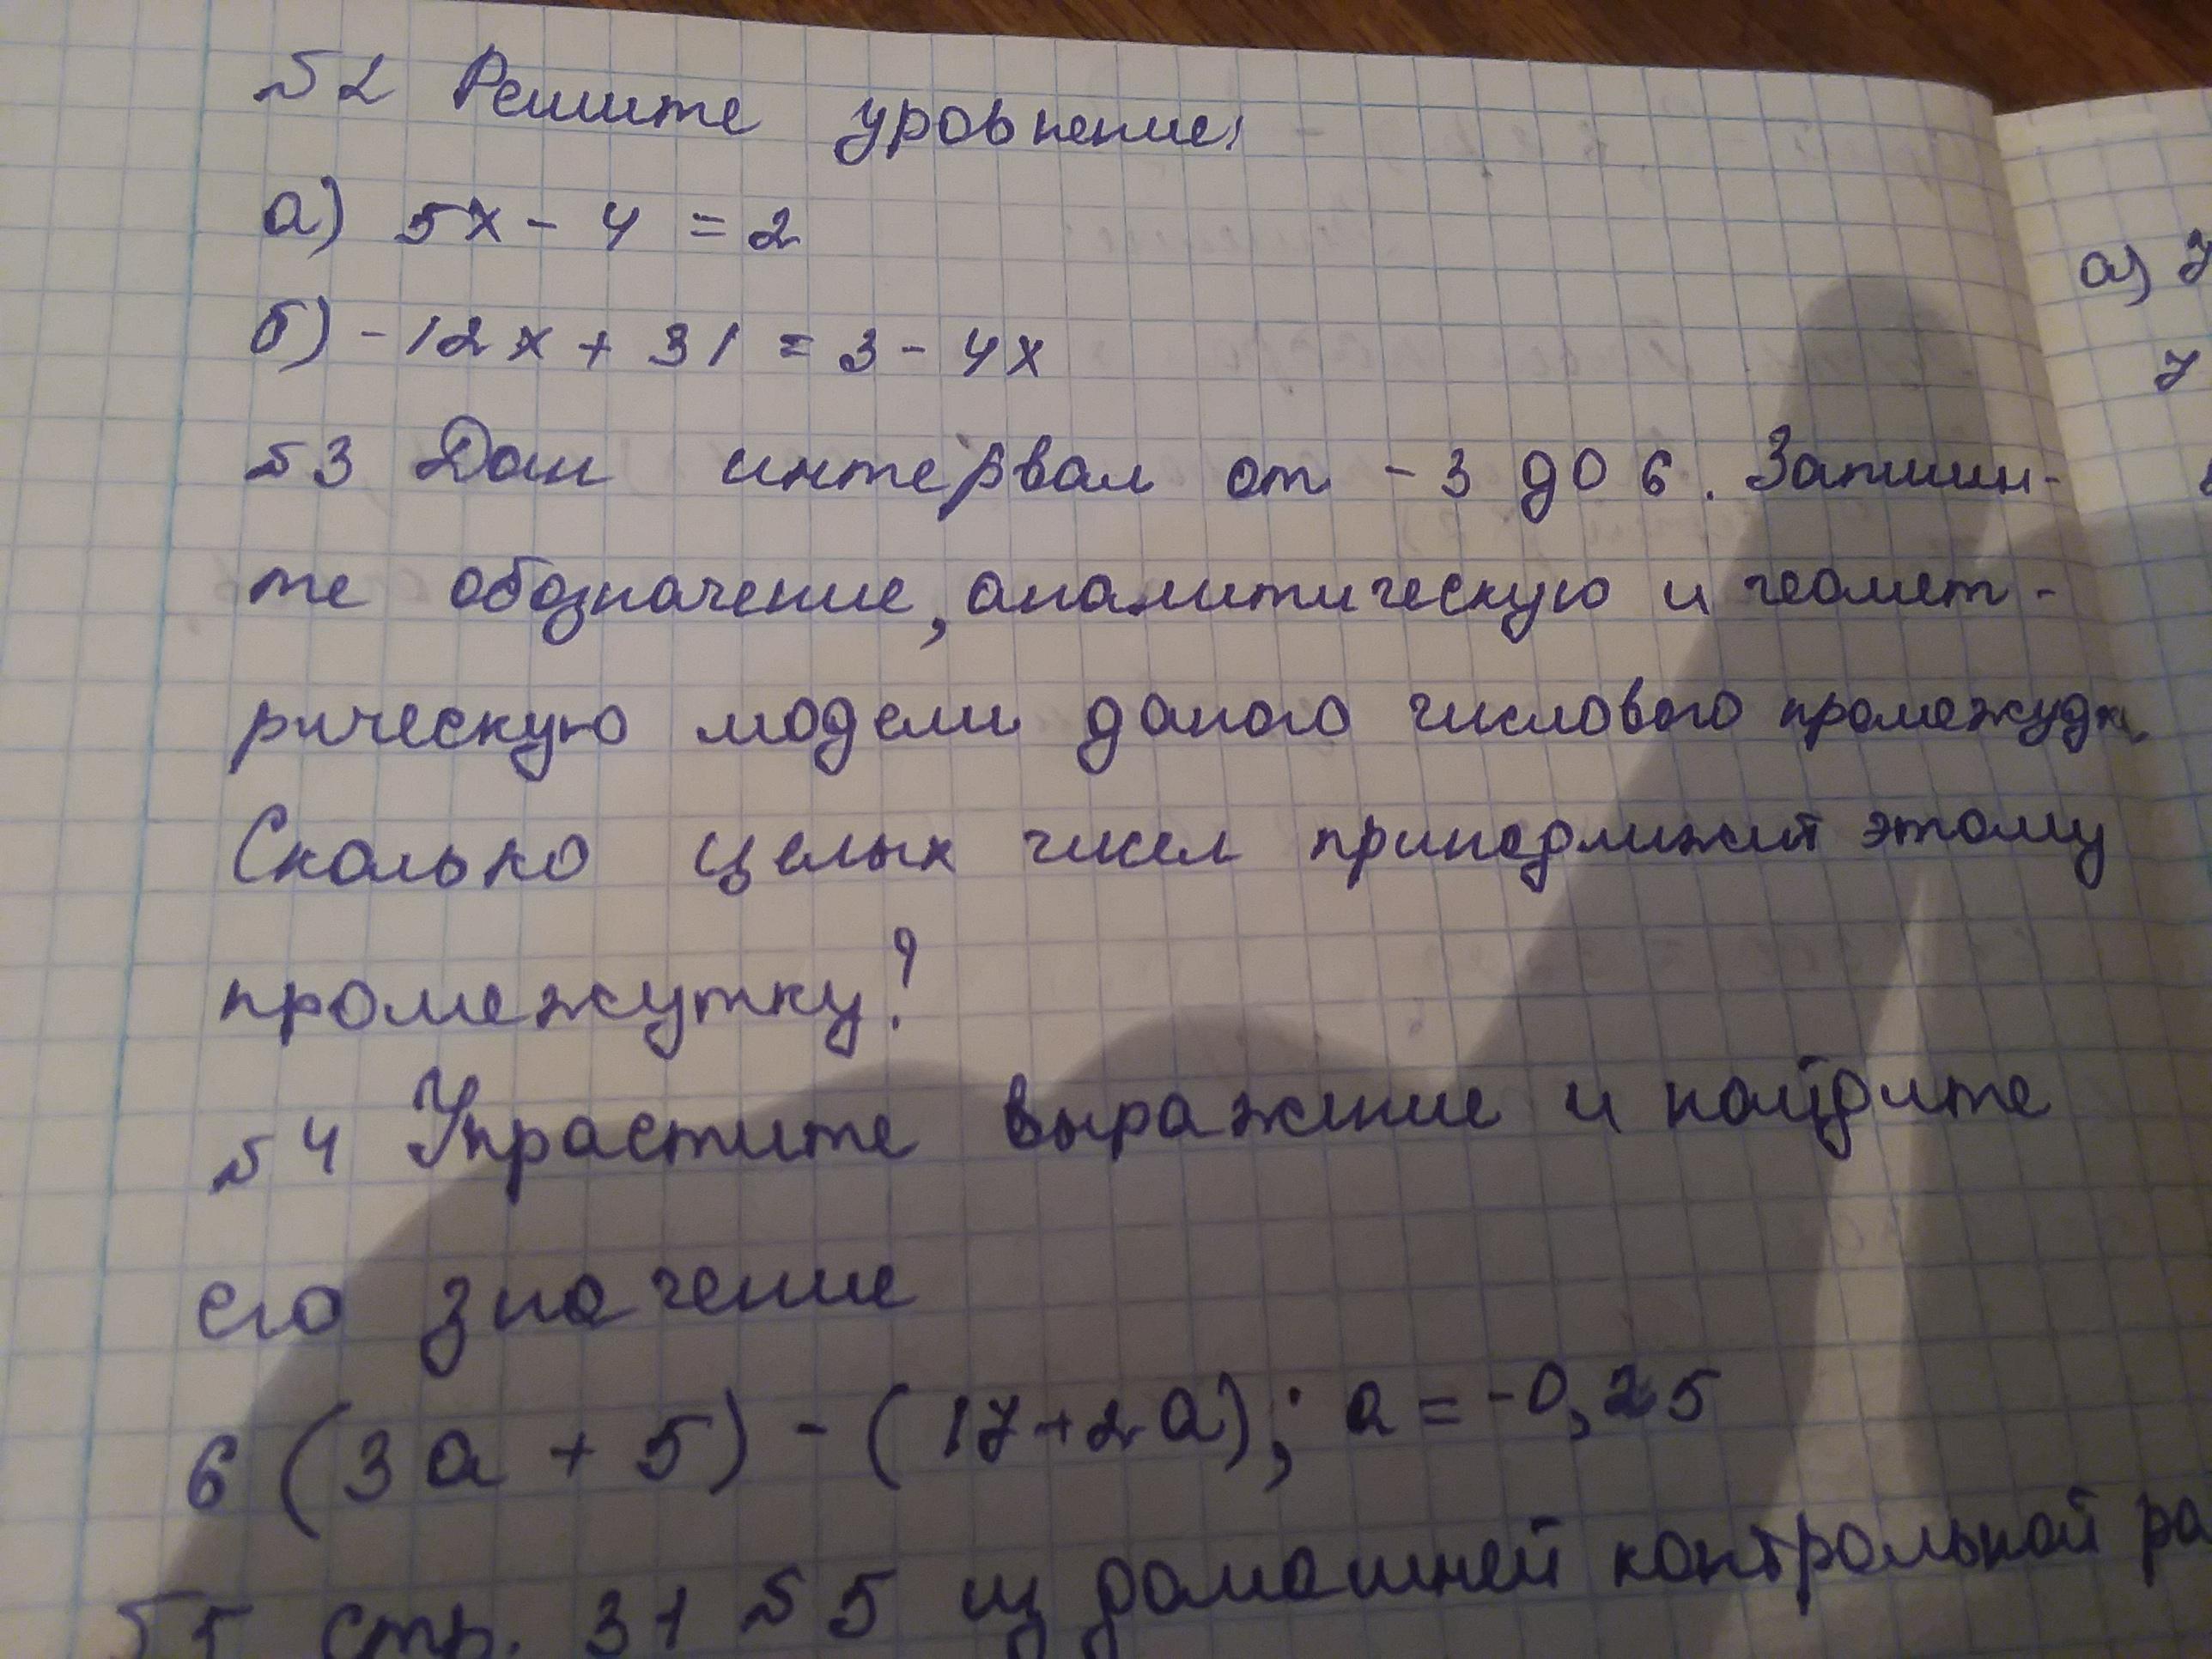 №2 Решите уровнение:
а) 5х - 4 = 2
б) -12х + 31 = 3 - 4х
№3 Дан интервал от -3 до 6. Запиши-
те обозначение, аналитическую и геомет-
рическую модели даного числового промежудк
Сколько целых чисел принадлижит этому
промежутку?
№4 Упрастите выражение и найдите
его значение
6 (3а + 5) - (17 + 2а); а = -0,25
№5 стр. 31 №5 из домашней контрольной ра
а) 7
7